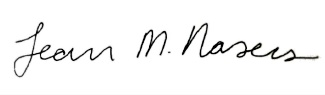 Jean M. Nasers